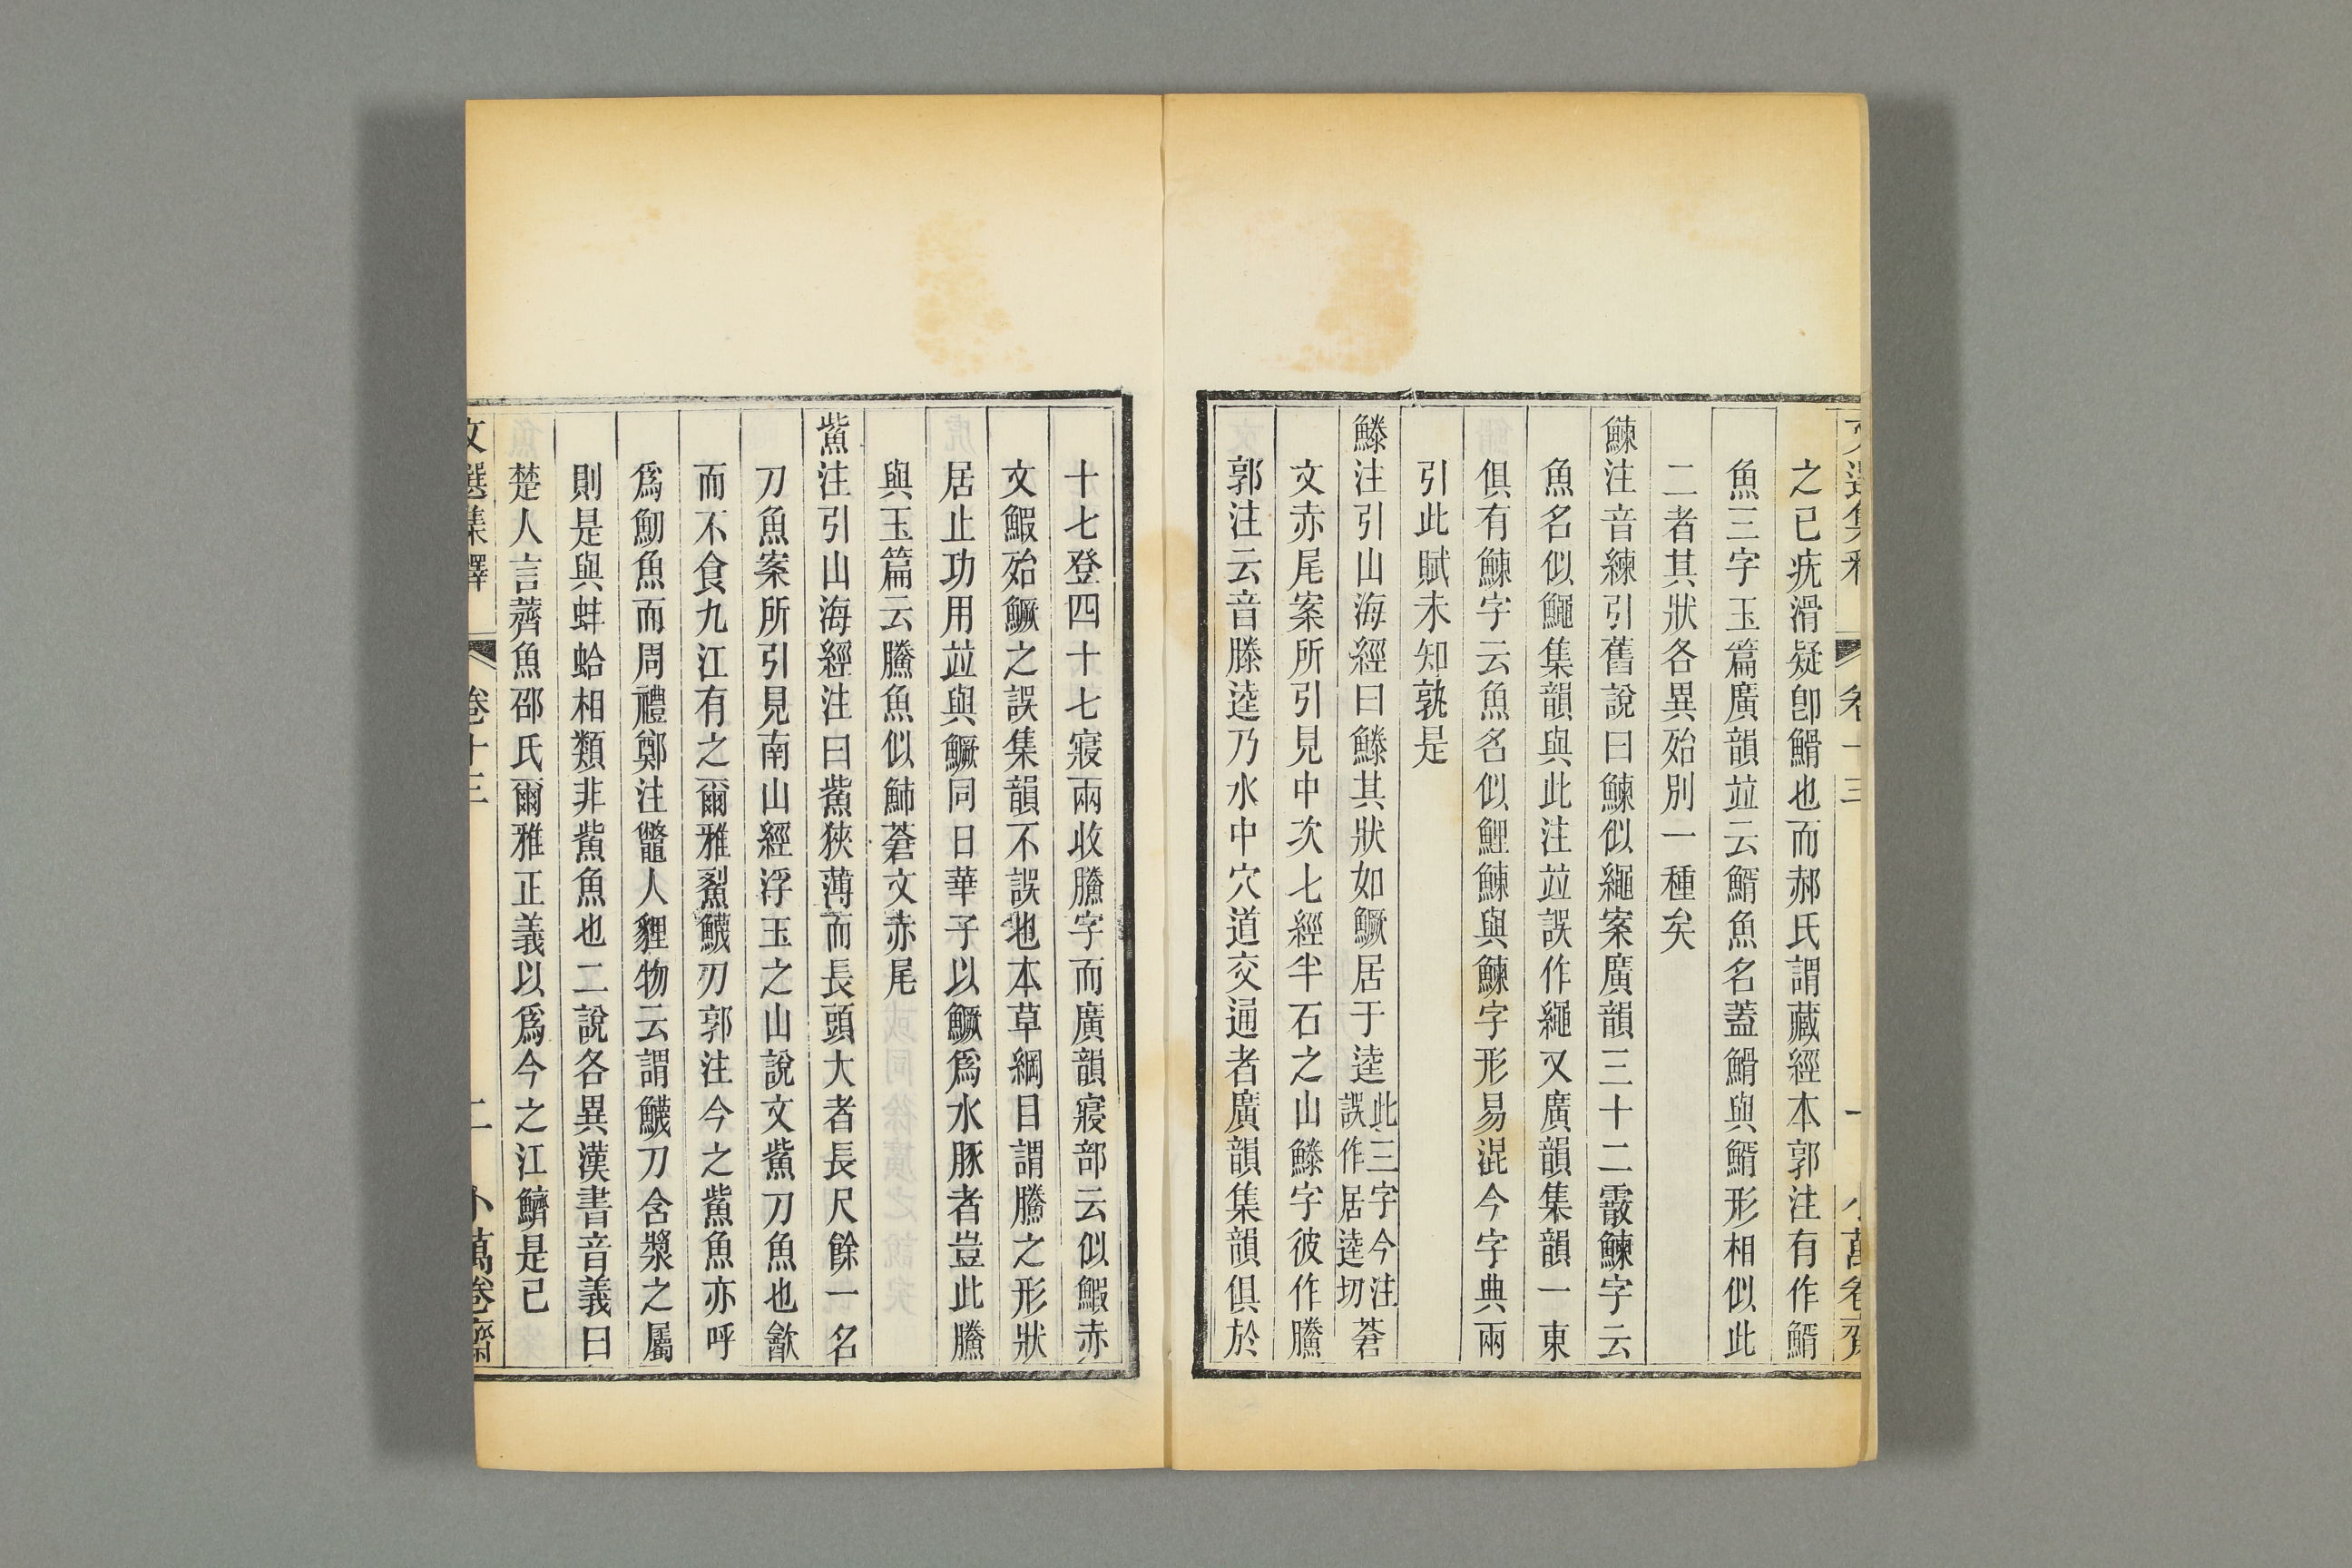 之已疣滑疑卽䱻也而郝氏謂藏經本郭注有作鰖
魚三字玉篇廣韻竝云鰖魚名蓋䱻與鰖形相似此
二者其狀各異殆別一種矣
鰊注音練引舊說曰鰊似繩案廣韻三十二霰鰊字云
魚名似鱦集韻與此注竝誤作繩又廣韻集韻一東
俱有鯟字云魚名似鯉鯟與鰊字形易混今字典兩
引此賦未知孰是
䲢注引山海經曰䲢其狀如鱖居于逵此三字今注誤作居逵切蒼
文赤尾案所引見中次七經半石之山䲢字彼作䲢
郭注云音滕逵乃水中穴道交通者廣韻集韻俱於
十七登四十七寑兩收䲢字而廣韻寑部云似鰕赤
文鰕殆鱖之誤集韻不誤也本草綱目謂䲢之形狀
居止功用竝與鱖同日華子以鱖爲水豚者豈此䲢
與玉篇云䲢魚似鰤蒼文赤尾
鮆注引山海經注曰鮆狹薄而長頭大者長尺餘一名
刀魚案所引見南山經浮玉之山說文鮆刀魚也㱃
而不食九江有之爾雅鮤鱴刀郭注今之鮆魚亦呼
爲魛魚而周禮鄭注鼈人貍物云謂鱴刀含漿之屬
則是與蚌蛤相類非鮆魚也二說各異漢書音義曰
楚人言薺魚邵氏爾雅正義以爲今之江鱭是已
文選集釋 卷十三 二 小萬卷齋